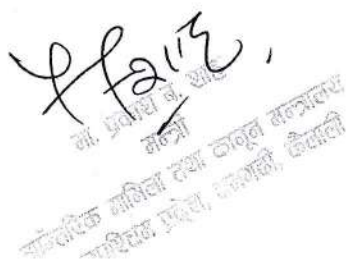 मा. प्रकाश ब. शाह
मन्त्री
आन्तरिक मामिला तथा कानून मन्त्रालय
प्रदेश, धनगढी, कैलाली